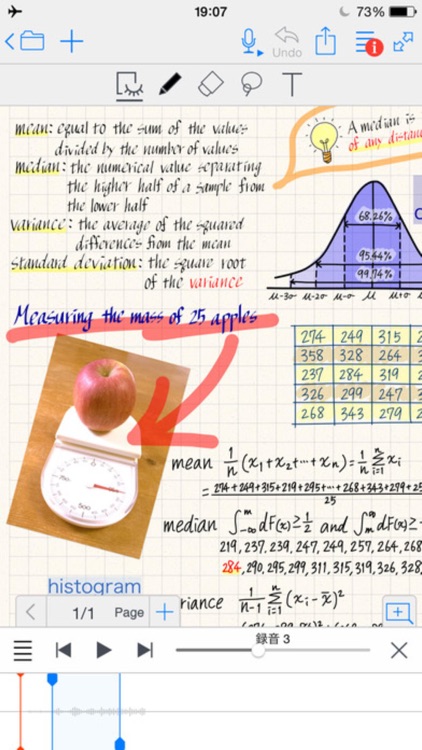 19:07
73%
Undo
T
mean: equal to the sum of the values
divided by the number of values
median: the numerical value separating
the higher half of a sample from
the lower half
variance: the average of the squared
differences from the mean
standard deviation: the square root
of the variance
A median is
of any distan
68.26%
95.44%
99.74%
μ-3σ μ-2σ μ-σ μ μ+σ
Measuring the mass of 25 apples
274 249 315
358 328 264
237 284 319
326 299 247
268 343 279
mean 1/n (x₁+x₂+⋯+xₙ)=1/n Σᵢ₌₁ⁿ xᵢ
= 274+249+315+219+295+⋯+268+343+279+25
25
median ∫₋∞ᵐ dF(x)≥1/2 and ∫ₘ∞ dF(x)≥
219,237,239,247,249,257,264,268
284,290,295,299,311,315,319,326,328,
histogram
riance 1/n-1 Σᵢ₌₁ⁿ (xᵢ-x̄)²
1/1 Page
録音 3